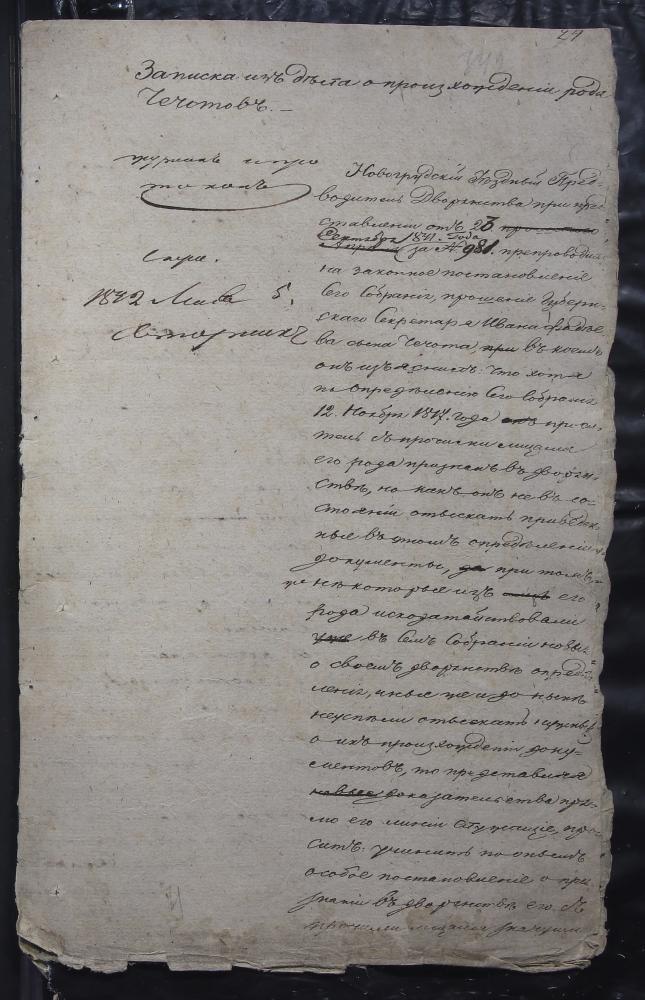 29
Записка изъ дѣла о происхожденіи рода
Чечотовъ. —
журналъ и про
токолъ
1842 Мая 5.
Новогрудскій Уѣздный Пред-
водитель Дворянства при пред-
ставленіи отъ 23
Сентября 1841 года
за № 981. препроводилъ
на законное постановленіе
Сего Собранія, прошеніе Губерн-
скаго Секретаря Ивана Фадѣе-
ва сына Чечота, при въ коемъ
онъ изъяснилъ: что хотя
по опредѣленію Сего Собранія
12. Ноябр 1817. года онъ проси-
тель съ прочими лицами
его рода признанъ въ дворян-
ствѣ, но какъ онъ не въ со-
стояніи отыскать приведен-
ные въ томъ опредѣленіи
документы, да при томъ
же нѣкоторые изъ его
рода исходатайствовали
уже въ Семъ Собраніи новыя
о своемъ дворянствѣ опредѣ-
ленія, иные же и до нынѣ
неуспѣли отыскать нужныхъ
о ихъ происхожденіи доку-
ментовъ, то представляя
новые доказательства пря-
мо его линіи служащіе, про-
ситъ: учинить по онымъ
особое постановленіе о при-
знаніи въ дворянствѣ его съ
прочими лицами